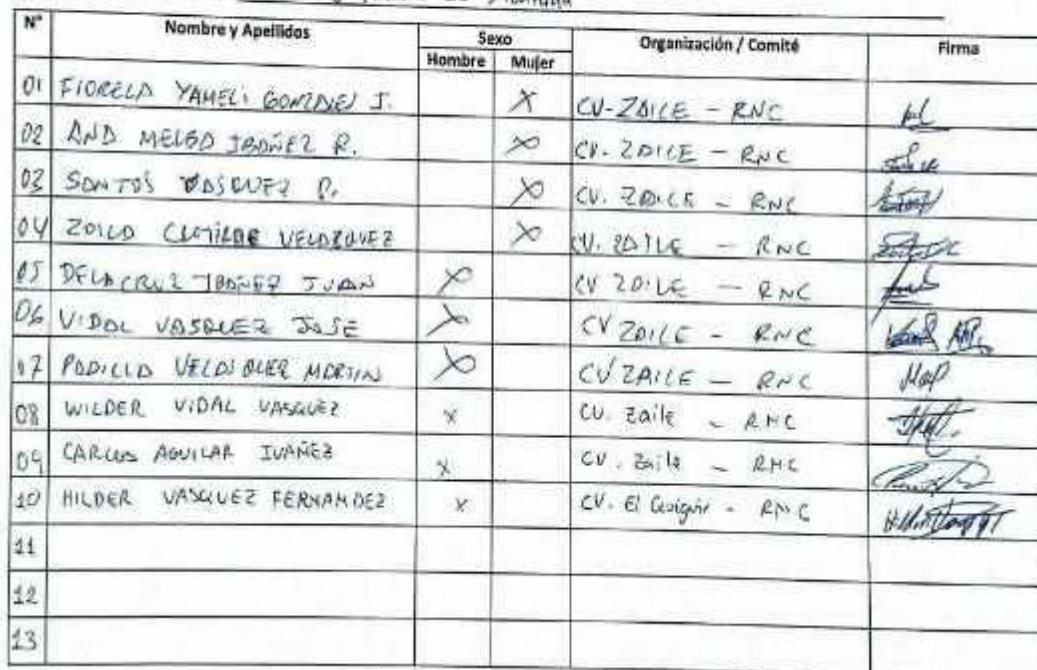 N° Nombre y Apellidos Sexo Organización / Comité Firma
Hombre Mujer
01 FIORELA YAMELI GONZALES J. X CV-ZAILE - RNC
02 ANA MELBA IBAÑEZ R. X CV. ZAILE - RNC
03 SANTOS VASQUEZ P. X CV. ZAILE - RNC
04 ZOILA CLOTILDE VELAZQUEZ X CV. ZAILE - RNC
05 DELACRUZ IBAÑEZ JUAN X CV ZAILE - RNC
06 VIDAL VASQUEZ JOSE X CV ZAILE - RNC
07 PADILLA VELASQUEZ MARTIN X CV ZAILE - RNC
08 WILDER VIDAL VASQUEZ X CV. Zaile - RNC
09 CARLOS AGUILAR IVAÑEZ X CV. Zaile - RNC
10 HILDER VASQUEZ FERNANDEZ X CV. El - RNC
11
12
13